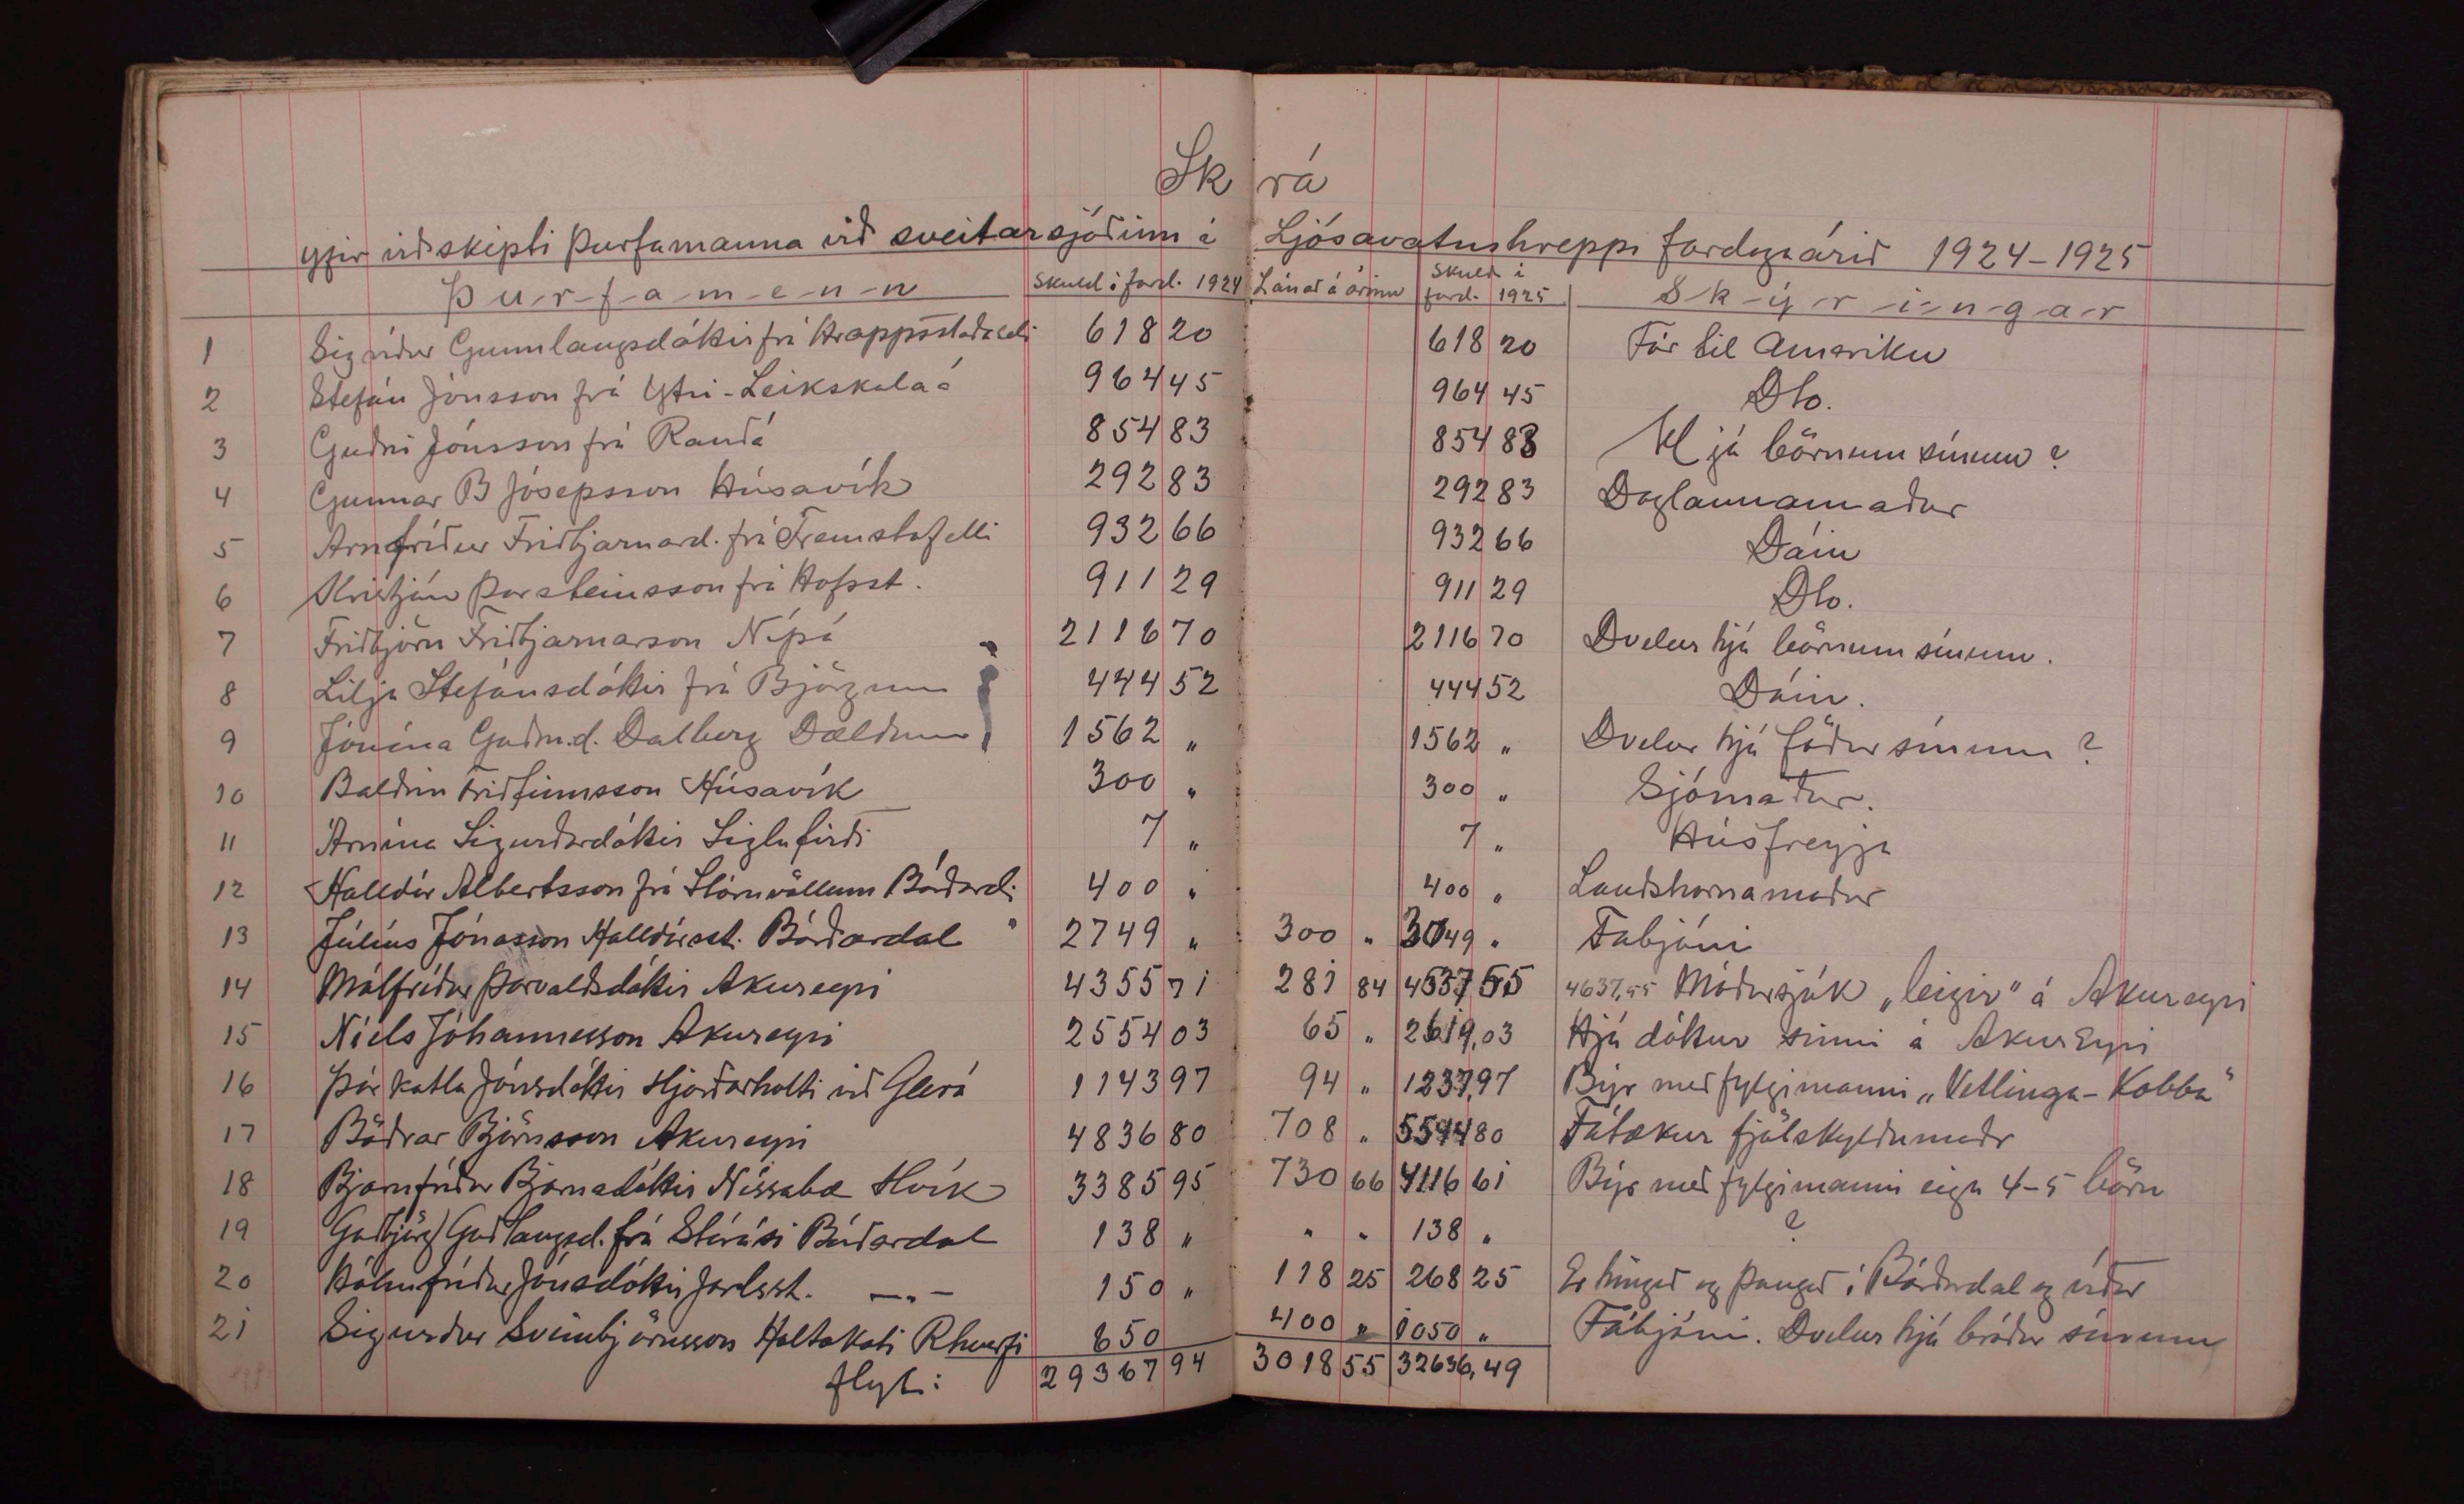 Skrá
yfir viðskipti þurfamanna við sveitarsjóðinn í Ljósavatnshreppi fardagaárið 1924-1925
Þ-u-r-f-a-m-e-n-n Skuld í fard. 1924 Lánað á árinu Skuld í fard. 1925 S-k-ý-r-i-n-g-a-r
1 Sigríður Gunnlaugsdóttir frá Hrappsstaðaseli 618 20 618 20 Fór til Ameríku
2 Stefán Jónsson frá Ytri-Leikskálaá 964 45 964 45 Do.
3 Guðni Jónsson frá Rauðá 854 83 854 83 Hjá börnum sínum?
4 Gunnar B Jósepsson Húsavík 292 83 292 83 Daglaunamaður
5 Arnfríður Friðbjarnard. frá Fremstafelli 932 66 932 66 Dáin
6 Kristján Þorsteinsson frá Hofsst. 911 29 911 29 Do.
7 Friðbjörn Friðbjarnarson Nípá 2116 70 2116 70 Dvelur hjá börnum sínum.
8 Lilja Stefánsdóttir frá Björgum 444 52 444 52 Dáin.
9 Jónína Guðm.d. Dalberg Dældum 1562 " 1562 " Dvelur hjá föður sínum?
10 Baldvin Friðfinnsson Húsavík 300 " 300 " Sjómaður.
11 Árnína Sigurðardóttir Siglufirði 7 " 7 " Húsfreyja
12 Halldór Albertsson frá Stóruvöllum Bárðard. 400 " 400 " Landshornamaður
13 Júlíus Jónasson Halldórsst. Bárðardal 2749 " 300 " 3049 " Fábjáni
14 Málfríður Þorvaldsdóttir Akureyri 4355 71 281 84 4637 55 4637,55 Móðursjúk „leigir" á Akureyri
15 Níels Jóhannesson Akureyri 2554 03 65 " 2619,03 Hjá dóttur sinni á Akureyri
16 Þórkatla Jónsdóttir Hjarðarholti við Glerá 1143 97 94 " 1237,97 Býr með fylgimanni „Vetlinga-Kobba"
17 Böðvar Björnsson Akureyri 4836 80 708 " 5544 80 Fátækur fjölskyldumaðr
18 Bjarnfríður Bjarnadóttir Nissabæ Hvík 3385 95 730 66 4116 61 Býr með fylgimanni eiga 4-5 börn
19 Guðbjörg Guðlaugsd. frá Stóruási Bárðardal 138 " " " 138 " ?
20 Hólmfríður Jónsdóttir Jarlsst. —"— 150 " 118 25 268 25 Er hingað og þangað í Bárðardal og víðar
21 Sigurður Sveinbjörnsson Holtakoti Rhverfi 650 400 " 1050 " Fábjáni. Dvelur hjá bróður sínum
flyt: 29367 94 3018 55 32636,49